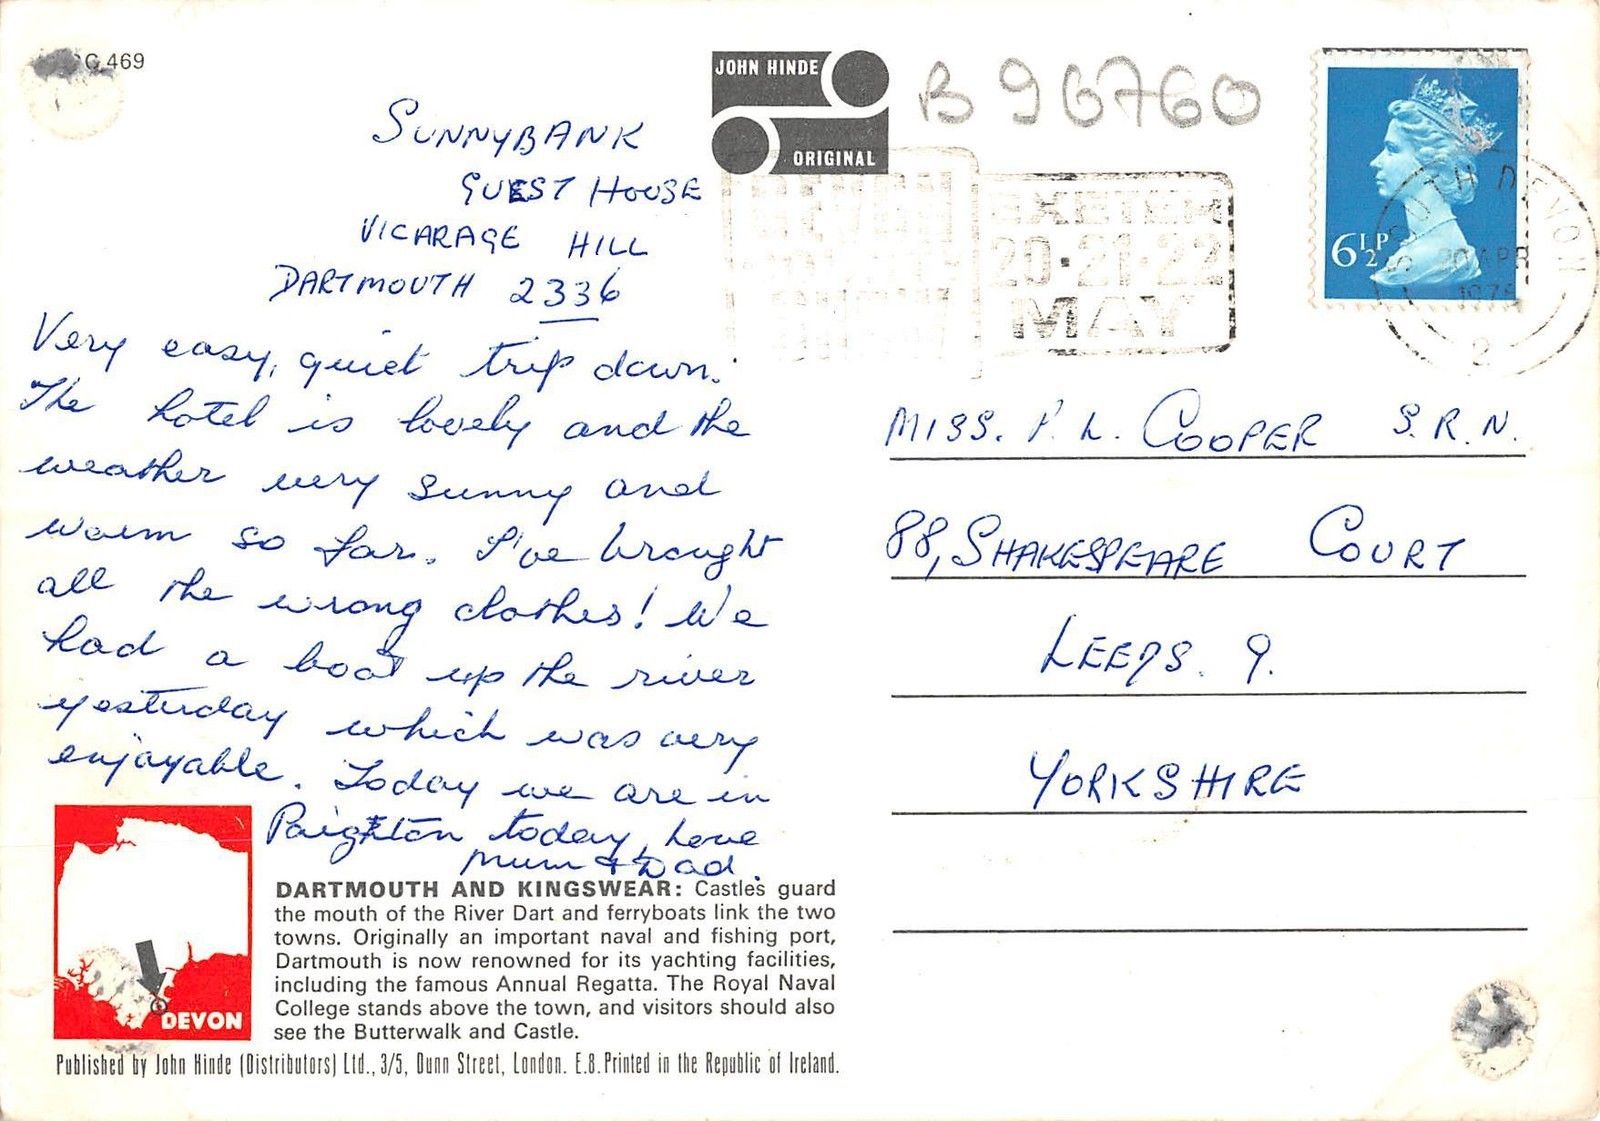 469
SUNNYBANK
GUEST HOUSE
VICARAGE HILL
DARTMOUTH 2336
Very easy, quiet trip down.
The hotel is lovely and the
weather very sunny and
warm so far. I've brought
all the wrong clothes! We
had a boat up the river
yesterday which was very
enjoyable. Today we are in
Paignton today, Love
Mum & Dad.
DEVON
DARTMOUTH AND KINGSWEAR: Castles guard
the mouth of the River Dart and ferryboats link the two
towns. Originally an important naval and fishing port,
Dartmouth is now renowned for its yachting facilities,
including the famous Annual Regatta. The Royal Naval
College stands above the town, and visitors should also
see the Butterwalk and Castle.
Published by John Hinde (Distributors) Ltd., 3/5, Dunn Street, London. E.8. Printed in the Republic of Ireland.
JOHN HINDE
ORIGINAL
B 96760
DEVON
EXETER
20·21·22
MAY
6½P
SOUTH DEVON
20 APR
2
MISS. P. L. COOPER S.R.N.
88, SHAKESPEARE COURT
LEEDS. 9.
YORKSHIRE